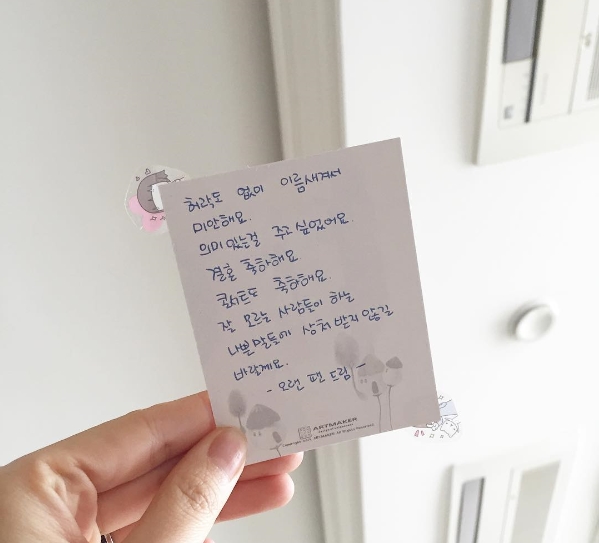 허락도 없이 이름새겨서
미안해요.
의미있는걸 주고싶었어요.
결혼 축하해요.
콘서트도 축하해요.
잘 모르는 사람들이 하는
나쁜말들에 상처받지않길
바랄게요.
- 오랜 팬 드림 -
ARTMAKER